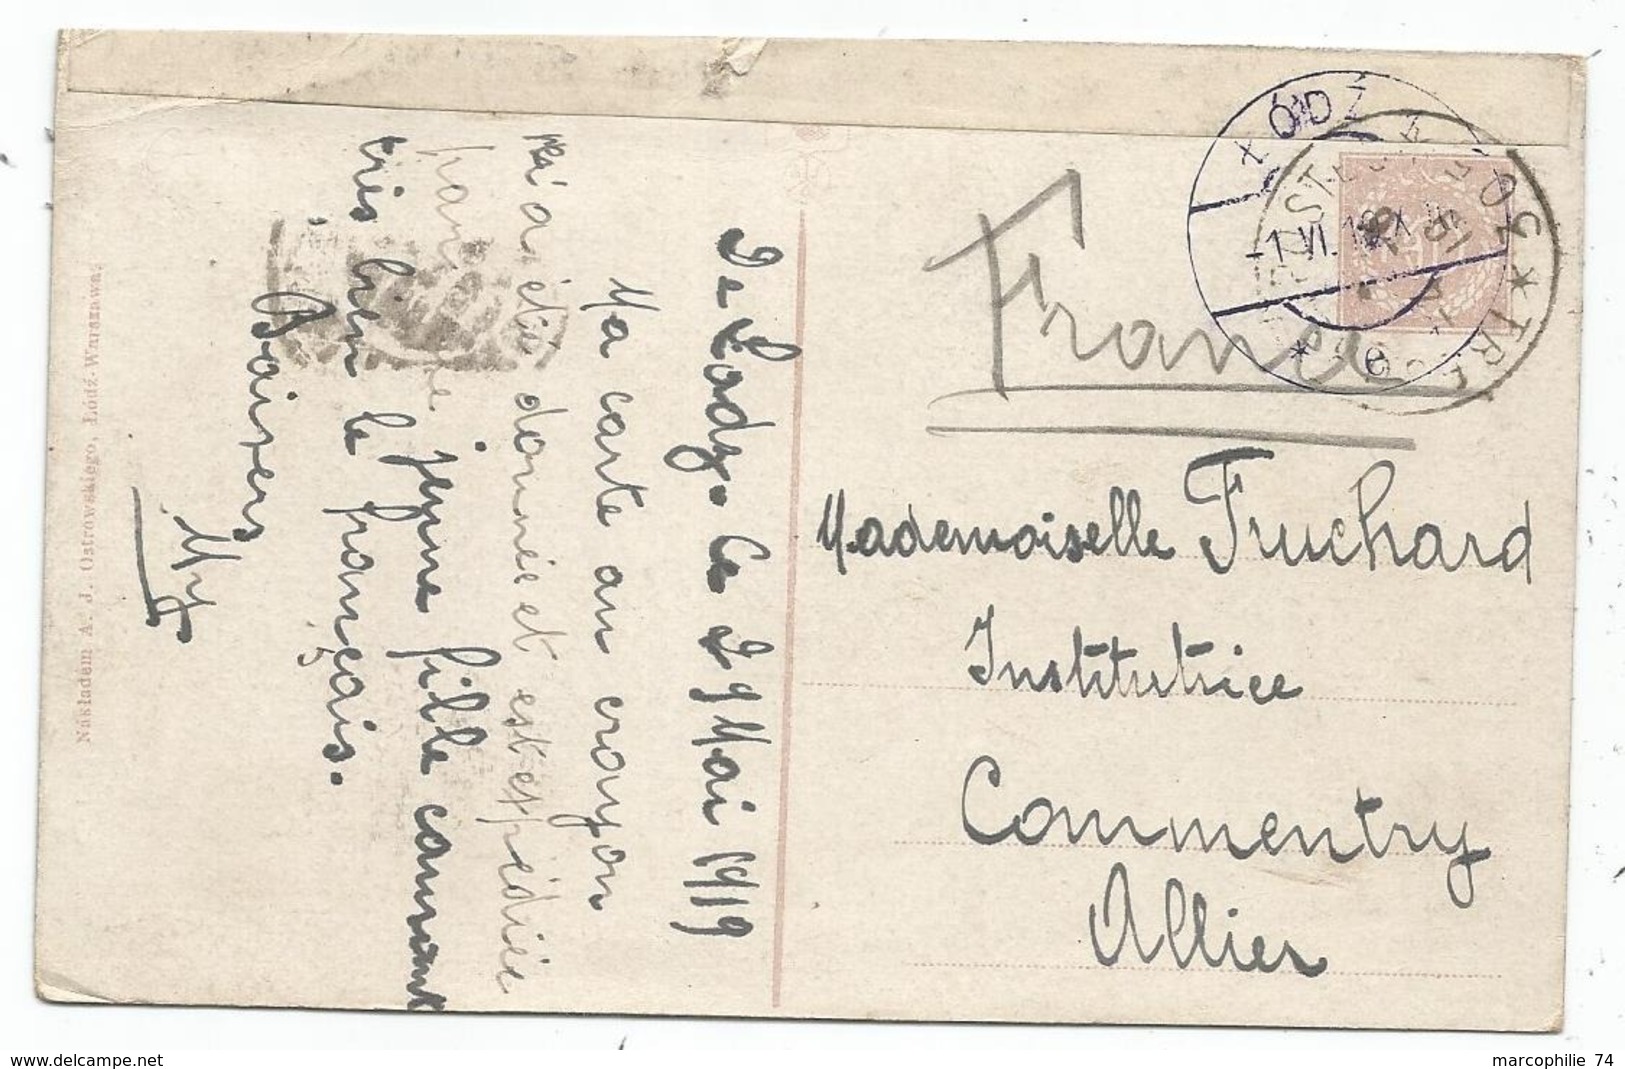 De Lodz. Ce 29 Mai 1919
Ma carte au crayon
m'a été donnée et est expédiée
par une jeune fille connaissant
très bien le français.
Baisers
My
France
Mademoiselle Fruchard
Institutrice
Commentry
Allier
ŁÓDŹ
-1.VI.19
* e
* TRÉSOR
Nakładem A. J. Ostrowskiego, Łódź-Warszawa.
www.delcampe.net
marcophilie 74